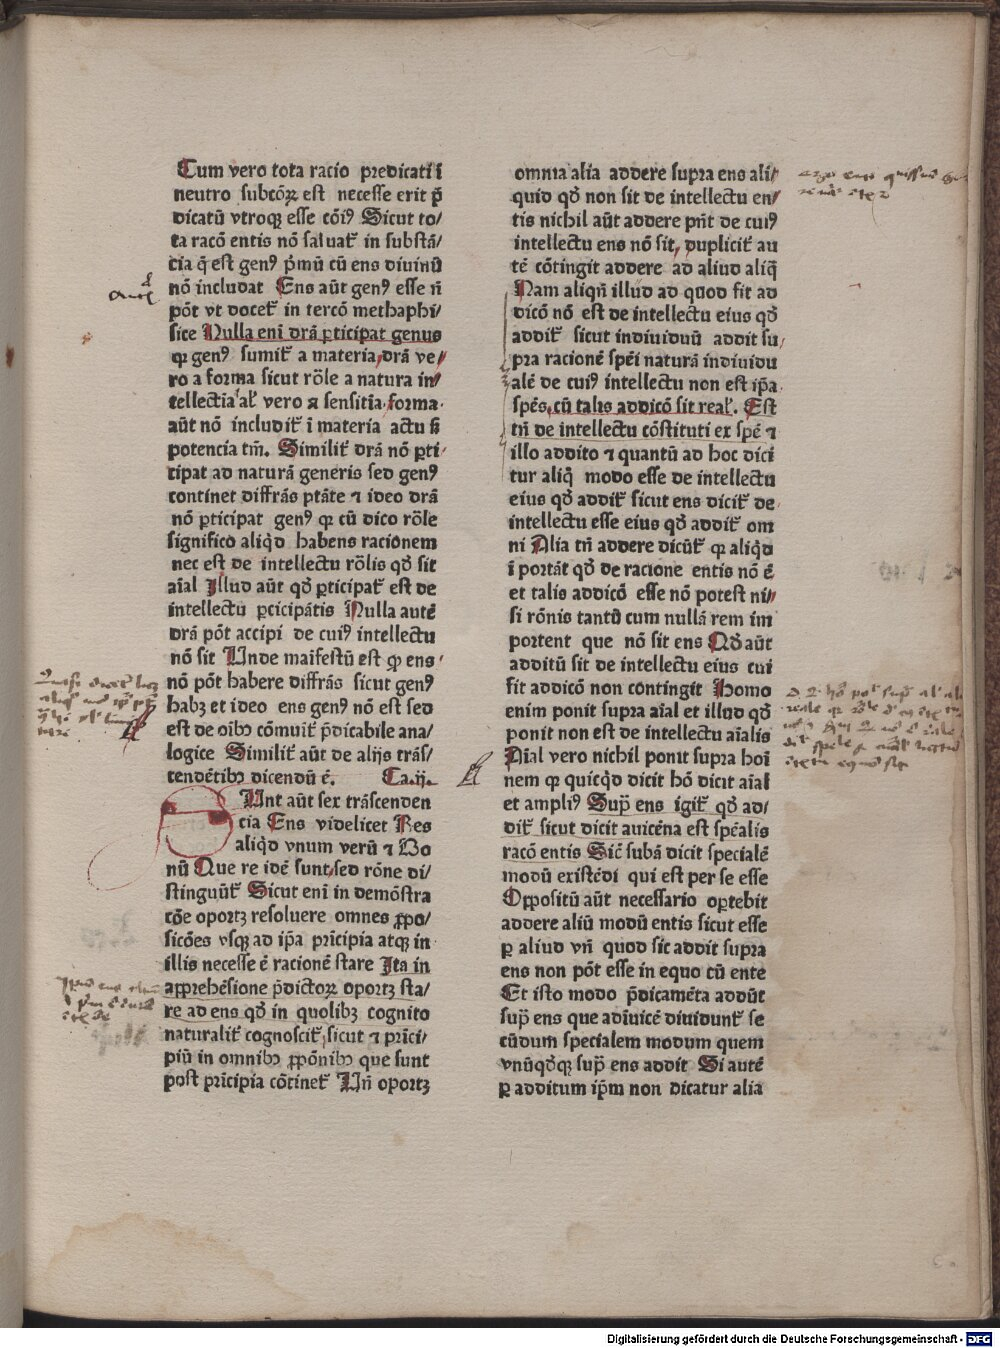 Cum vero tota racio predicati ī
neutro subcōꝝ est necesse erit p̄
dicatū vtroqꝫ esse cōiꝰ Sicut to/
ta racō entis nō saluat᷑ in substā/
cia q̄ est genꝰ p̄mū cū ens diuinū
nō includat Ens aūt genꝰ esse n̄
pōt vt docet᷑ in tercō methaphi/
sice Nulla eni drā ꝑticipat genus
qꝛ genꝰ sumit᷑ a materia, drā ve/
ro a forma sicut rōle a natura in/
tellectiā al᷑ vero ꝛ sensitiā forma
aūt nō includit᷑ ī materia actu s̄
potencia tm̄. Similit᷑ drā nō ꝑti/
cipat ad naturā generis sed genꝰ
continet diffrās ptāte ⁊ ideo drā
nō ꝑticipat genꝰ qꝛ cū dico rōle
significo aliqd̄ habens racionem
nec est de intellectu rōlis qd̄ sit
aīal Illud aūt qd̄ ꝑticipat᷑ est de
intellectu ꝑticipātis Nulla autē
drā pōt accipi de cuiꝰ intellectu
nō sit Unde maīfestū est ꝙ ens
nō pōt habere diffrās sicut genꝰ
habꝫ et ideo ens genꝰ nō est sed
est de oibꝰ cōmuit᷑ p̄dicabile ana/
logice Similit᷑ aūt de alijs trās/
tendētibꝰ dicendū ē. Ca.ij.
SUnt aūt sex trāscenden
cia Ens videlicet Res
aliqd̄ vnum verū ⁊ Bo
nū Que re idē sunt, sed rōne di/
stinguūt᷑ Sicut eni in demōstra
cōe oportꝫ resoluere omnes ꝓpo/
sicōes vsqꝫ ad ip̄a prīcipia atqꝫ in
illis necesse ē racionē stare Ita in
apprehēsione p̄dictoꝝ oportꝫ sta/
re ad ens qd̄ in quolibꝫ cognito
naturalit᷑ cognoscit᷑, sicut ⁊ prīci/
piū in omnibꝰ ꝓpōnibꝰ que sunt
post prīcipia cōtinet᷑ Un̄ oportꝫ
omnia alia addere supra ens ali/
quid qd̄ non sit de intellectu en/
tis nichil aūt addere pn̄t de cuiꝰ
intellectu ens nō sit, duplicit᷑ au
tē cōtingit addere ad aliud aliq̄
Nam aliqn̄ illud ad quod fit ad
dicō nō est de intellectu eius qd̄
addit᷑ sicut indiuiduū addit su/
pra racionē spēi naturā indiuidu
alē de cuiꝰ intellectu non est ip̄a
spēs, cū talis addicō sit real᷑. Est
tn̄ de intellectu cōstituti ex spē ⁊
illo addito ⁊ quantū ad hoc dici
tur aliq̄ modo esse de intellectu
eius qd̄ addit᷑ sicut ens dicit᷑ de
intellectu esse eius qd̄ addit᷑ om
ni Alia tn̄ addere dicūt᷑ qꝛ aliqd̄
ī portāt qd̄ de racione entis nō ē
et talis addicō esse nō potest ni/
si rōnis tantū cum nullā rem im
portent que nō sit ens Qd̄ aūt
additū sit de intellectu eius cui
fit addicō non contingit Homo
enim ponit supra aīal et illud qd̄
ponit non est de intellectu aīalis
Aīal vero nichil ponit supra hoī
nem qꝛ quicqd̄ dicit hō dicit aīal
et ampliꝰ Sup̄ ens igit᷑ qd̄ ad/
dit᷑ sicut dicit auicēna est spēalis
racō entis Sic̄ subā dicit specialē
modū existēdi qui est per se esse
Oppositū aūt necessario oꝑtebit
addere aliū modū entis sicut esse
ꝑ aliud vn̄ quod sic addit supra
ens non pōt esse in equo cū ente
Et isto modo p̄dicamēta addūt
sup̄ ens que adīuicē diuidunt᷑ se
cūdum specialem modum quem
vnūqd̄qꝫ sup̄ ens addit Si autē
ꝑ additum ip̄m non dicatur alia
Digitalisierung gefördert durch die Deutsche Forschungsgemeinschaft - DFG